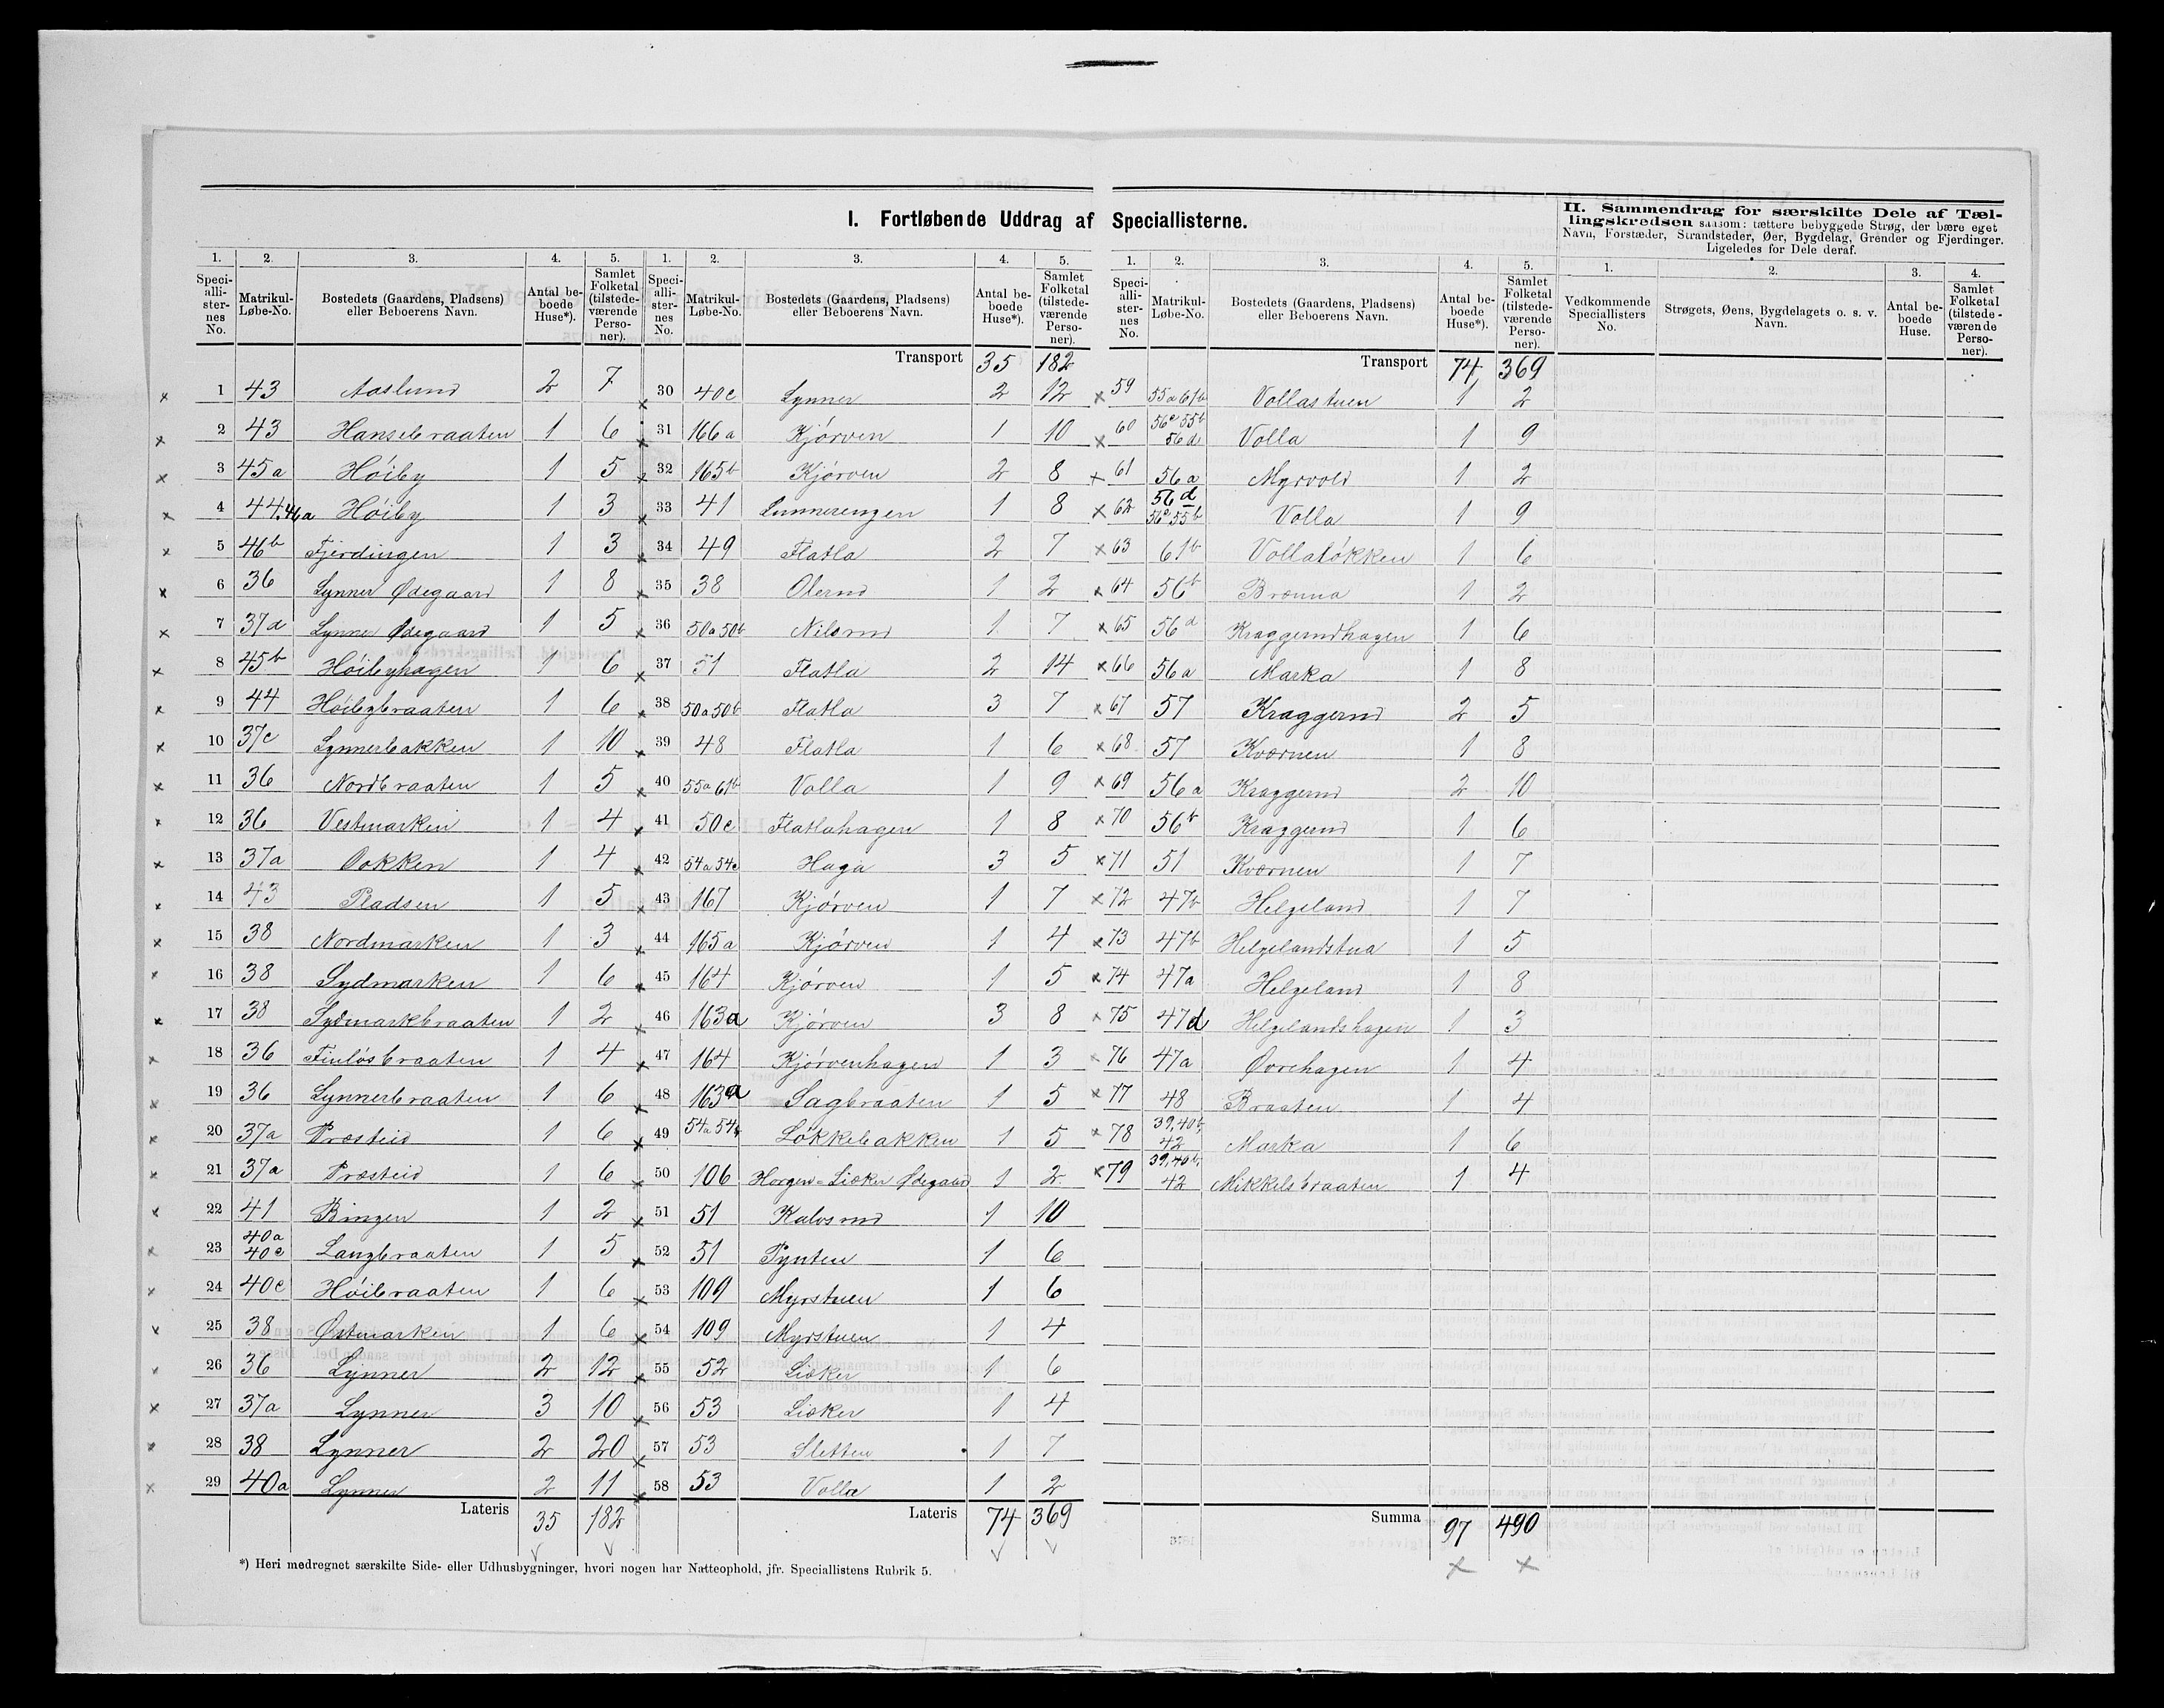 I. Fortløbende Uddrag af Speciallisterne.
II. Sammendrag for særskilte Dele af Tæl-
lingskredsen saasom: tættere bebyggede Strøg, der bære eget
Navn, Forstæder, Strandsteder, Øer, Bygdelag, Grender og Fjerdinger.
Ligeledes for Dele deraf.
1. 2. 3. 4. 5.
Speciallisternes No. Matrikul-Løbe-No. Bostedets (Gaardens, Pladsens) eller Beboerens Navn. Antal beboede Huse*). Samlet Folketal (tilstedeværende Personer).
1 43 Aaslund 2 7
2 43 Hansebraaten 1 6
3 45a Høiby 1 5
4 44.46a Høiby 1 3
5 46b Fjerdingen 1 3
6 36 Lynner Ødegaard 1 8
7 37d Lynner Ødegaard 1 5
8 45b Høibyhagen 1 6
9 44 Høibybraaten 1 6
10 37c Lynnerbakken 1 10
11 36 Nordbraaten 1 5
12 36 Vestmarken 1 4
13 37a Dokken 1 4
14 43 Pladsen 1 5
15 38 Nordmarken 1 3
16 38 Sydmarken 1 6
17 38 Sydmarkbraaten 1 2
18 36 Finløsbraaten 1 4
19 36 Lynnerbraaten 1 6
20 37a Præsteid 1 6
21 37a Præsteid 1 6
22 41 Bingen 1 2
23 40a 40c Langbraaten 1 5
24 40c Høibraaten 1 6
25 38 Østmarken 1 6
26 36 Lynner 2 12
27 37a Lynner 3 10
28 38 Lynner 2 20
29 40a Lynner 2 11
Lateris 35 182
1. 2. 3. 4. 5.
Speciallisternes No. Matrikul-Løbe-No. Bostedets (Gaardens, Pladsens) eller Beboerens Navn. Antal beboede Huse*). Samlet Folketal (tilstedeværende Personer).
Transport 35 182
30 40c Lynner 2 12
31 166a Kjørven 1 10
32 165b Kjørven 2 8
33 41 Lunnerengen 1 8
34 49 Flatla 2 7
35 38 Olerud 1 2
36 50a 50b Nilsrud 1 7
37 51 Flatla 2 14
38 50a 50b Flatla 3 7
39 48 Flatla 1 6
40 55a 61b Volla 1 9
41 50c Flatlahagen 1 8
42 54a 54c Haga 3 5
43 167 Kjørven 1 7
44 165a Kjørven 1 4
45 164 Kjørven 1 5
46 163a Kjørven 3 8
47 164 Kjørvenhagen 1 3
48 163a Sagbraaten 1 5
49 54a 54b Løkkebakken 1 5
50 106 Horgen=Lieker Ødegaard 1 2
51 51 Kalosrud 1 10
52 51 Pynten 1 6
53 109 Myrstuen 1 6
54 109 Myrstuen 1 4
55 52 Lieker 1 6
56 53 Lieker 1 4
57 53 Sletten 1 7
58 53 Volla 1 2
Lateris 74 369
1. 2. 3. 4. 5.
Speciallisternes No. Matrikul-Løbe-No. Bostedets (Gaardens, Pladsens) eller Beboerens Navn. Antal beboede Huse*). Samlet Folketal (tilstedeværende Personer).
Transport 74 369
59 55a 61b Vollastuen 1 2
60 56c 55b 56d Volla 1 9
61 56a Myrvold 1 2
62 56d 56c 55b Volla 1 9
63 61b Vollaløkken 1 6
64 56b Brænna 1 2
65 56d Kraggerudhagen 1 6
66 56a Marka 1 8
67 57 Kraggerud 2 5
68 57 Kværnen 1 8
69 56a Kraggerud 2 10
70 56b Kraggerud 1 6
71 51 Kværnen 1 7
72 47b Helgeland 1 7
73 47b Helgelandstua 1 5
74 47a Helgeland 1 8
75 47d Helgelandshagen 1 3
76 47a Øvrehagen 1 4
77 48 Braaten 1 4
78 39,40b, 42 Marka 1 6
79 39,40b, 42 Mikkelsbraaten 1 4
Summa 97 490
1. 2. 3. 4.
Vedkommende Speciallisters No. Strøgets, Øens, Bygdelagets o. s. v. Navn. Antal beboede Huse. Samlet Folketal (tilstedeværende Personer).
*) Heri medregnet særskilte Side- eller Udhusbygninger, hvori nogen har Natteophold, jfr. Speciallistens Rubrik 5.